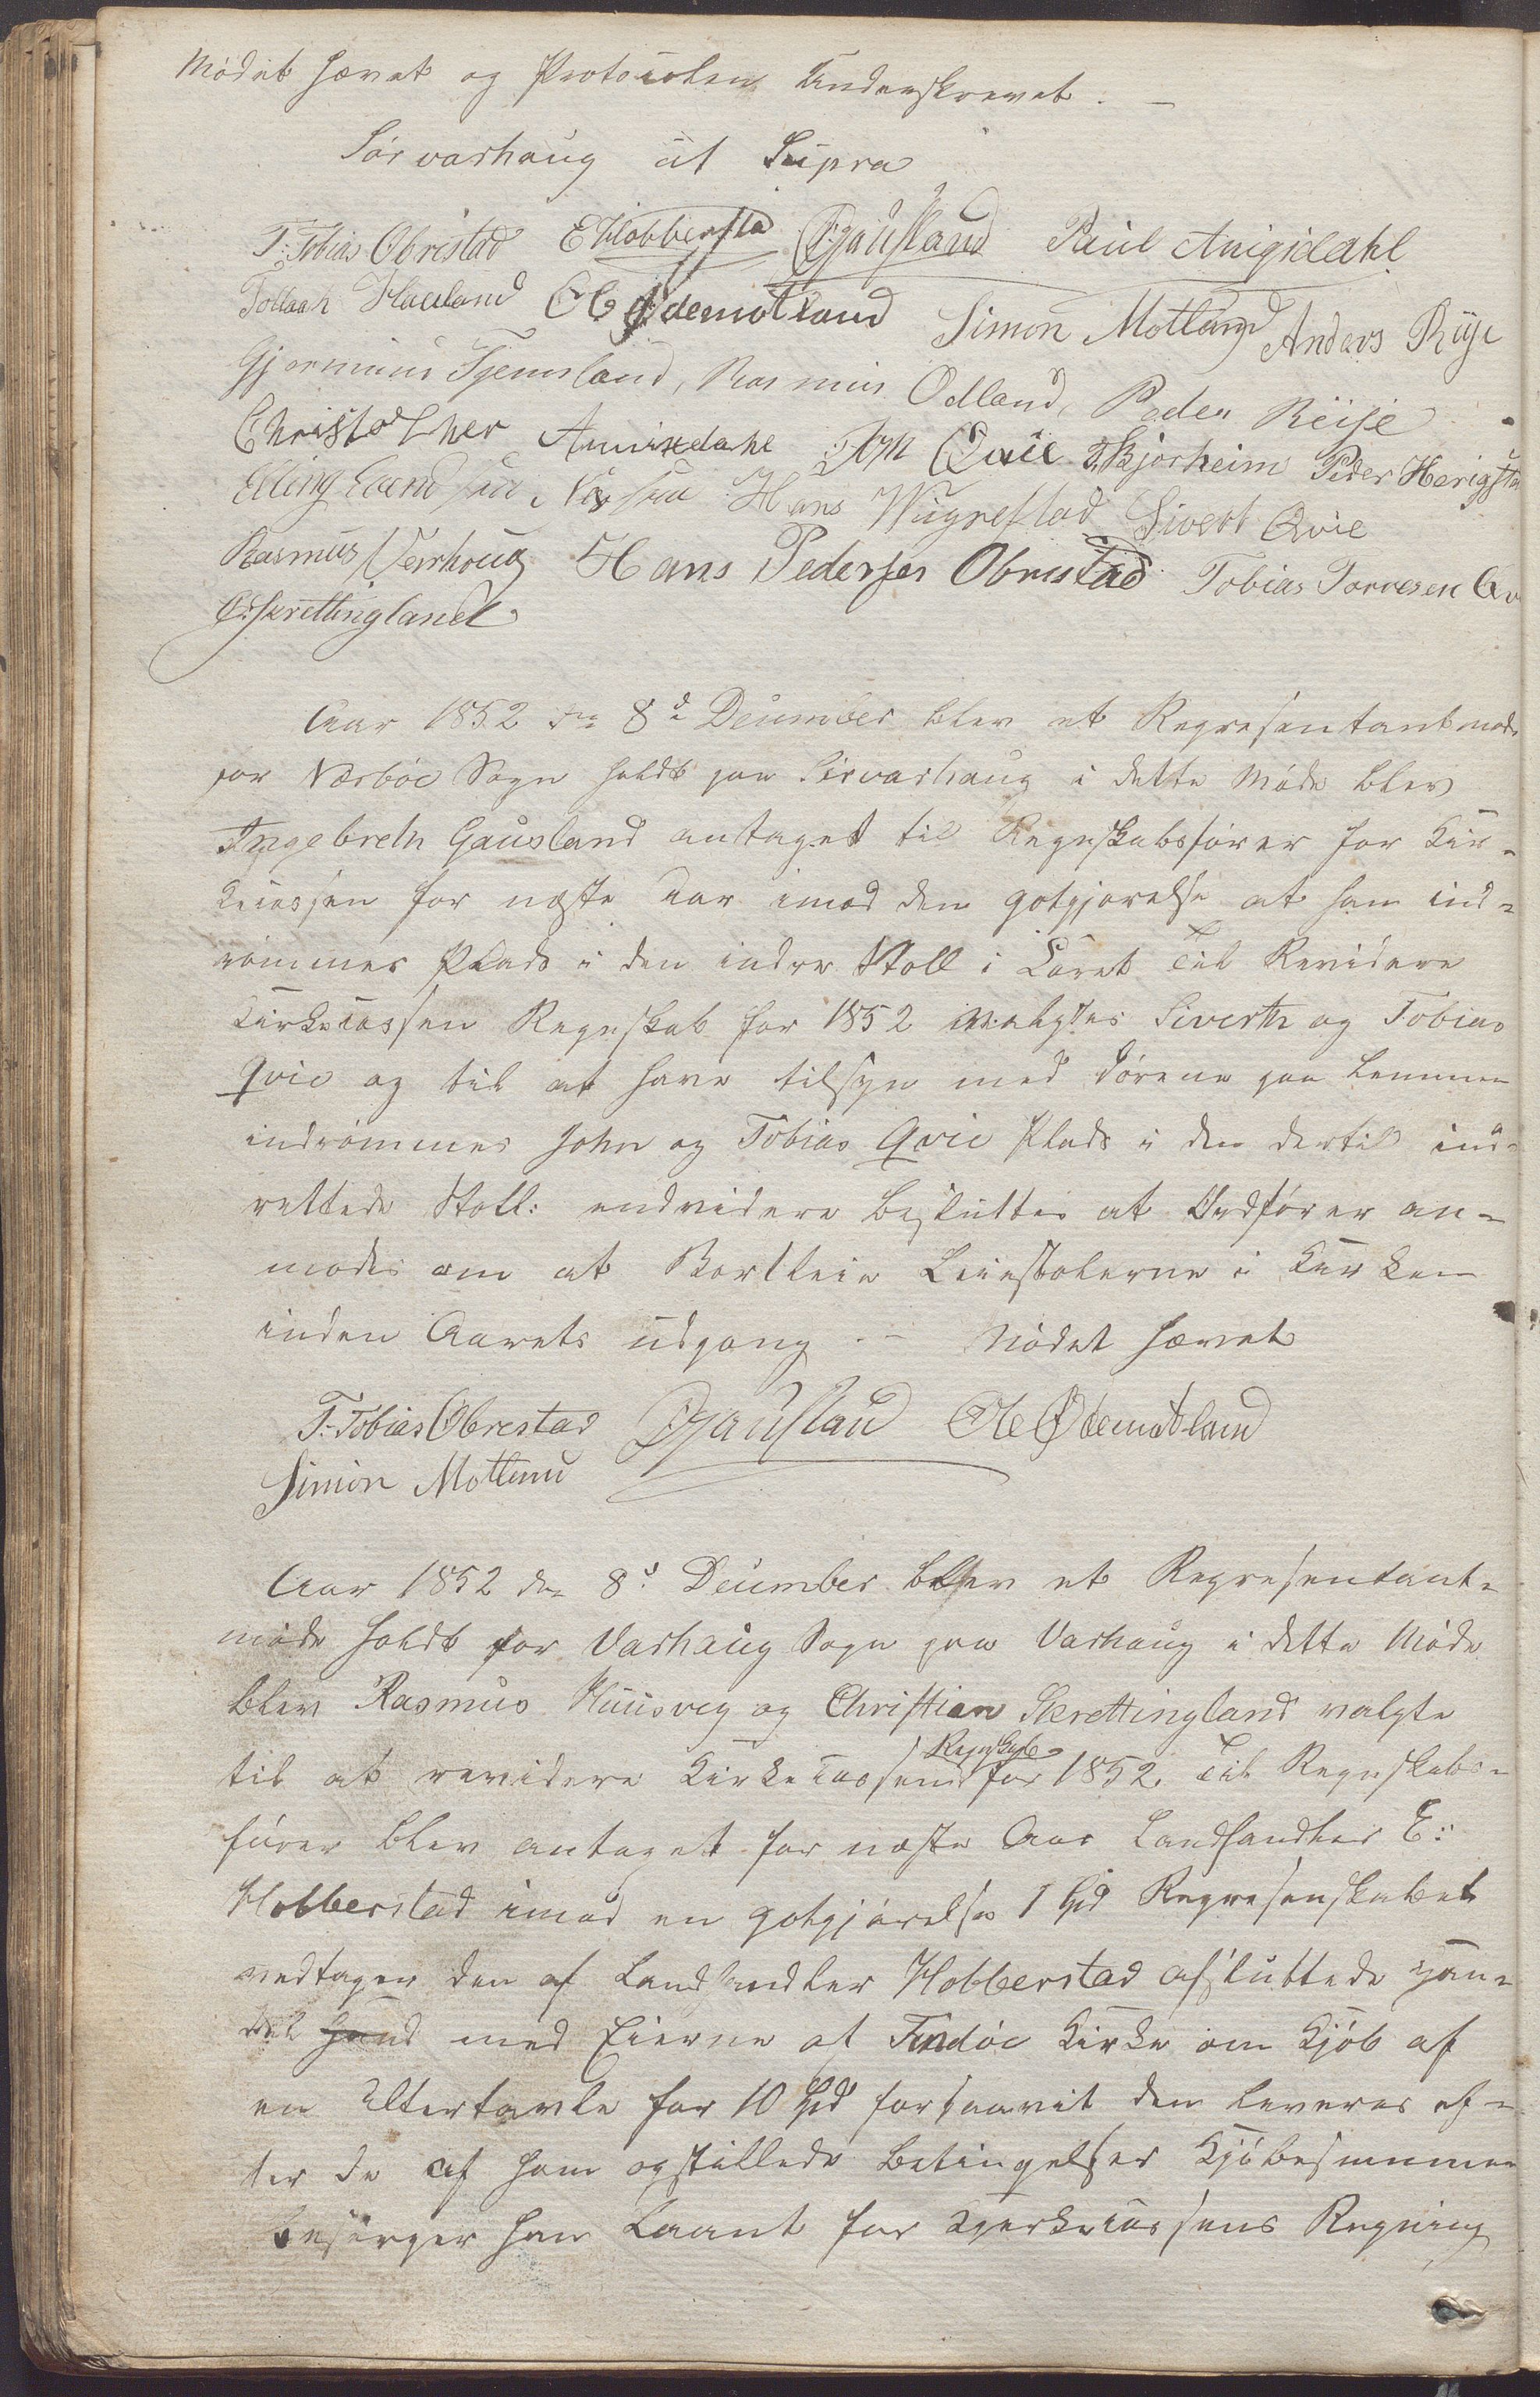 Mødet hævet og Protocolen Underskrevet. –
Sørvarhaug ut Supra
T: Tobias Obrestad E Hobberstad Gausland Paul Anigsdahl
Tollach Haaland Ole Ødemotland Simon Motland Anders Riise
Gjermund Tjemsland, Rasmus Odland, Peder Reise
Christopher Aniksdahl Jon Qvie T Bjorheim Peder Herigsta
Elling Evendsen Hans Wigrestad Sivert Qvie
Rasmus Verhoug Hans Pedersen Obrestad Tobias Torresen Qv
C: Skrettingland
Aar 1852 den 8de December blev et Representantmøde
for Nærbøe Sogn holdt paa Sørvarhaug i dette Møde blev
Ingebreth Gausland antaget til Regnskabsfører for Kir-
kecassen for næste Aar imod den gotgjørelse at han ind-
rømmes Plads i den indre Stoll i Coret Til Revidere
Kirkecassen Regnskab for 1852 valgtes Siverth og Tobias
Qvie og til at have tilsyn med Dørene paa Lemmen
indrømmes John og Tobias Qvie Plads i den dertil ind-
rettede Stoll: endvidere besluttes at Ordfører an-
modes om at Bortleie Leiestolerne i Kirken
inden Aarets udgang. – Mødet hævet
T: Tobias Obrestad Gausland Ole Ødemotland
Simon Motland
Aar 1852 den 8de December blev et Representant-
møde holdt for Varhaug Sogn paa Varhaug i dette Møde
blev Rasmus Huusveg og Christian Skrettingland valgte
til at revidere Kirkecassens Regnskab for 1852. Til Regnskabs-
fører blev antaget for næste Aar Landhandler E:
Hobberstad imod en gotgjørelse 1 Spd Representskabet
vedtager den af Landhandler Hobberstad afsluttede
med Eierne af Kirke om Kjøb af
en Altertavle for 10 Spd forsaavit den leveres ef-
ter de af ham opstillede betingelser Kjøbesummen
besørger han Laant for Kjerkecassens Regning